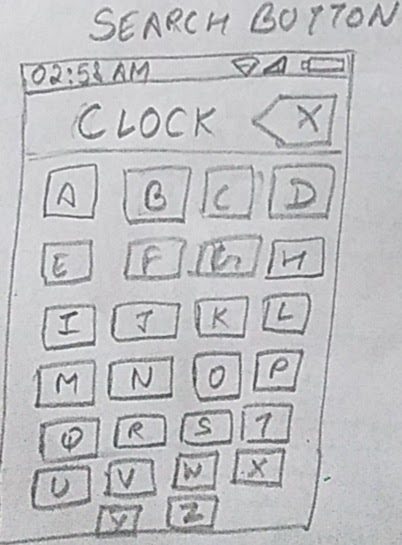 SEARCH BUTTON
02:58 AM
CLOCK X
A B C D
E F G H
I J K L
M N O P
Q R S T
U V W X
Y Z